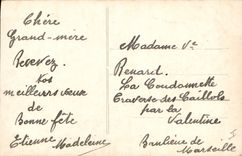 Chère
Grand-mère
Recevez
vos
meilleurs vœux
de
Bonne fête
Etienne Madeleine
Madame Vve
Renard
La Coudounette
Traverse des Caillols
par la
Valentine
Banlieue de Marseille